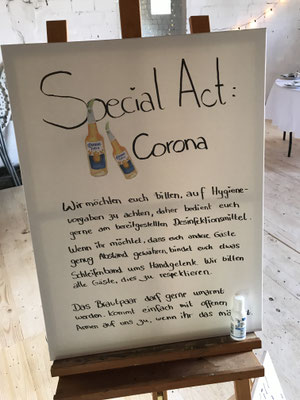 Special Act:
Corona
Wir möchten euch bitten, auf Hygiene-
vorgaben zu achten, daher bedient euch
gerne am bereitgestellten Desinfektionsmittel.
Wenn ihr möchtet, dass euch andere Gäste
genug Abstand gewähren, bindet euch etwas
Schleifenband ums Handgelenk. Wir bitten
alle Gäste, dies zu respektieren.
Das Brautpaar darf gerne umarmt
werden. Kommt einfach mit offenen
Armen auf uns zu, wenn ihr das